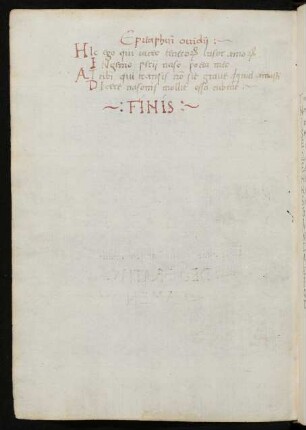 Epitaphiũ ouidij :~
Hic ego qui iaceo teneroꝝ lusor amoꝝ
Ingenio perij naso poeta meo
At tibi qui transis nõ sit graue quisquis amasti
Dicere nasonis molliter ossa cubent
~: FINIS :~